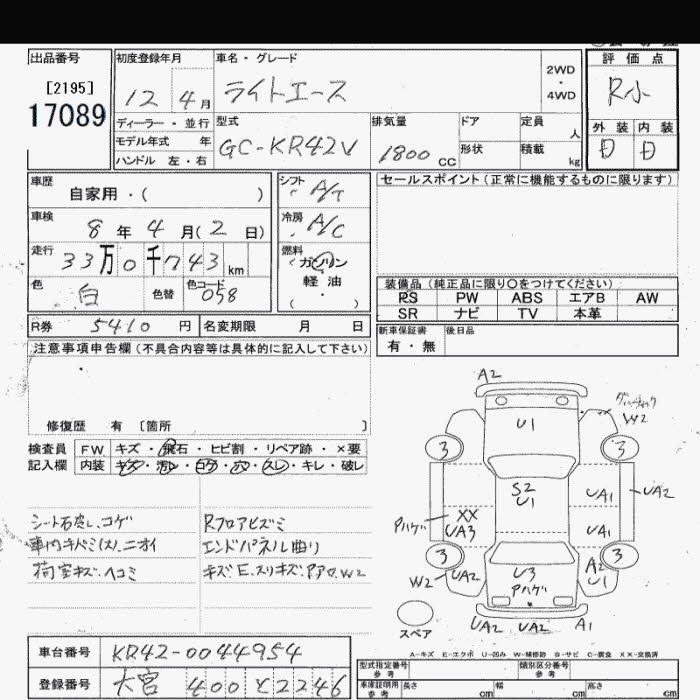 出品番号
[2195]
17089
初度登録年月
12 4月
車名・グレード
ライトエース
2WD
・
4WD
評価点
R小
外装 内装
D D
ディーラー・並行
モデル年式 年
ハンドル 左・右
型式
GC-KR42V
排気量
1800 CC
ドア
形状
定員 人
積載 kg
車歴
自家用・( )
車検
8年 4月(2日)
走行
33万0千743 km
色
白
色替
色コード
058
R券 5410 円
名変期限 月 日
シフト A/T
冷房 A/C
燃料
ガソリン
軽油
( ・ )
セールスポイント(正常に機能するものに限ります)
装備品(純正品に限り○をつけてください)
PS PW ABS エアB AW
SR ナビ TV 本革
新車保証書
有・無
後日品
注意事項申告欄(不具合内容等は具体的に記入して下さい)
修復歴 有 [箇所 ]
検査員
記入欄
FW キズ・飛石・ヒビ割・リペア跡・×要
内装 キズ・汚レ・コゲ・穴・スレ・キレ・破レ
シート石皮レ、コゲ
車内キズミ(大)、ニオイ
荷室キズ、ヘコミ
Rフロアヒズミ
エンドパネル曲り
A2
U1
W2
3
3
S2
U1
UA1
UA2
Pハゲ
XX
UA3
UA1
3
3
W2
UA2
U3
Pハゲ
A2
U1
UA2
UA2
A1
スペア
A-キズ E-エクボ U-凹み W-補修跡 S-サビ C-腐食 XX-交換済
車台番号 KR42-0044954
登録番号 大宮 400 と 2246
型式指定番号
参考
類別区分番号
参考
車庫証明用
参考
長さ cm
幅 cm
高さ cm